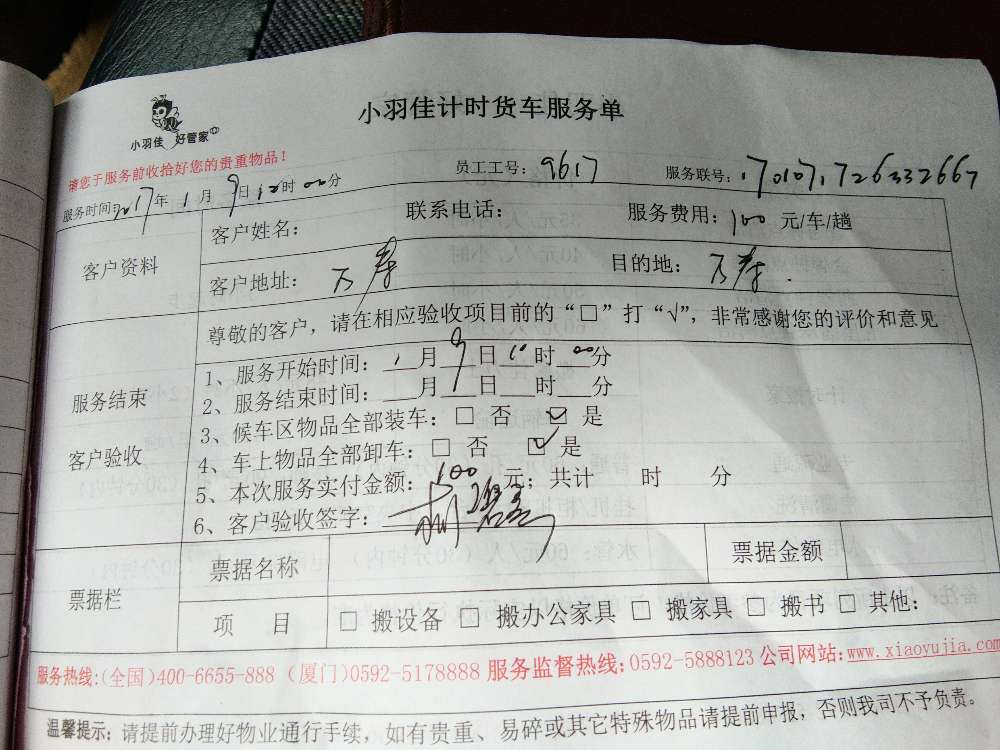 小羽佳计时货车服务单
小羽佳 好管家
请您于服务前收拾好您的贵重物品！
员工工号：9617
服务联号：1701071726332667
服务时间：2017年1月9日10时00分
客户资料
客户姓名： 联系电话： 服务费用：100元/车/趟
客户地址：万寿 目的地：万寿
服务结束
客户验收
尊敬的客户，请在相应验收项目前的“□”打“√”，非常感谢您的评价和意见
1、服务开始时间：1月9日10时00分
2、服务结束时间：___月9日___时___分
3、候车区物品全部装车：□ 否 ☑ 是
4、车上物品全部卸车：□ 否 ☑ 是
5、本次服务实付金额：100元；共计 时 分
6、客户验收签字：
票据栏
票据名称 票据金额
项 目 □ 搬设备 □ 搬办公家具 □ 搬家具 □ 搬书 □ 其他：
服务热线：(全国)400-6655-888 (厦门)0592-5178888 服务监督热线：0592-5888123 公司网站：www.xiaoyujia.com
温馨提示：请提前办理好物业通行手续，如有贵重、易碎或其它特殊物品请提前申报，否则我司不予负责。